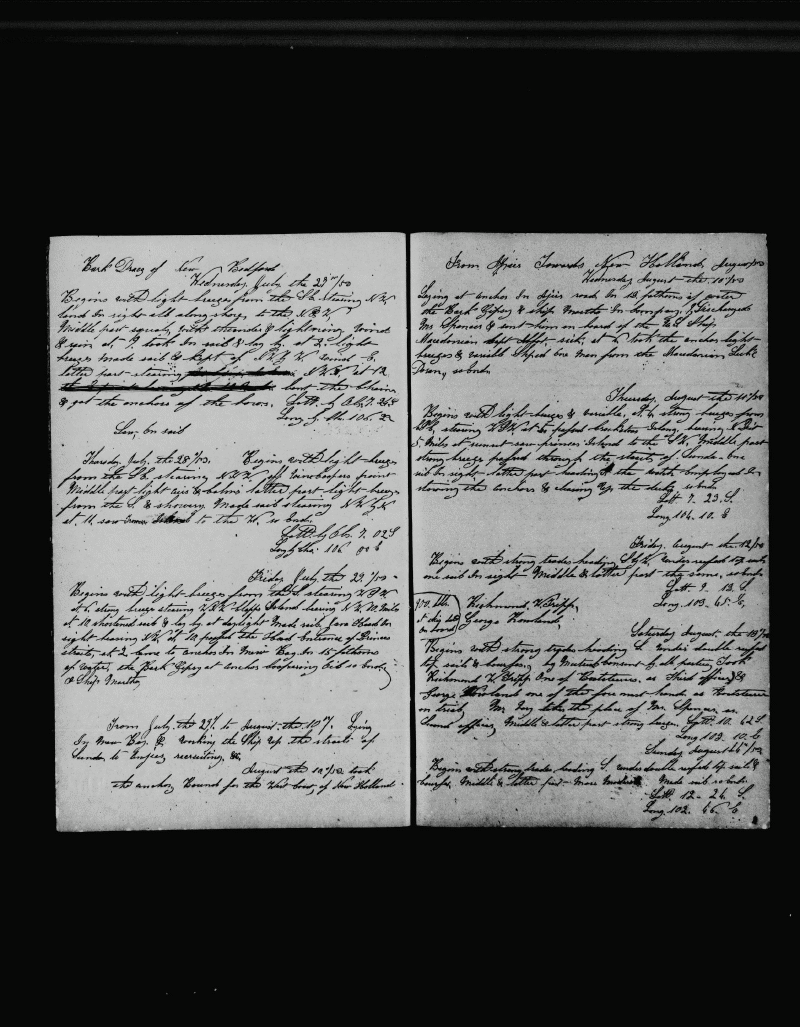 Bark Dracy of New Bedford
Wednesday July the 28th/53
Begins with light breeze from the S.E. steering N.W
land in sight all along shore to the N & W
Middle part squaly, with thunder & lightning wind
& rain at 7 took in sail & lay by at 2 light
breeze made sail & kept of N.W.
latter part steering N.W. at 12
bent the Chains
& got the anchors of the bows. Latt. by Ob. 7. 26 S
Long by 106. 22
Saw, on sail
Thursday July the 28/53. Begins with light breeze
from the S.E. steering N.W. off Wincoopers point
Middle part light airs & calms latter part light breeze
from the S. & showery. Made sail steering N.W.
at 11 saw Island to the W. so ends
Latt. by Ob. 7. 02 S
Long by 106 00 E
Friday July the 29th/53
Begins with light breeze from the S. steering
at 6 strong breeze steering W.N.W. Claps Island bearing N.W. 10 Miles
at 10 shortened sail & lay by at daylight Made sail, Java Head in
sight bearing N.W. at 10 passed the Island Entrance of Princes
straits, at 2 Came to anchor in Mew Bay In 15 fathoms
of water, the Bark Gipsy at anchor coopering Oil so ends
& Ship Martha
From July the 29th to August the 10th. Lying
In Mew Bay & working the Ship up the straits of
Sunda to Anjier recruiting &c
August the 10th/53 took
the anchor Bound for the West Coast of New Holland
From Anjier Towards New Holland, August/53
Wednesday August the 10/53
Laying at anchor In Anjier road In 13 fathoms of water
the Bark Gipsy & Ship Martha In Company, Discharged
Mr Spencer & sent him on board of the U.S Ship
Macedonian sick, at 6 took the anchor light
breeze & variable Shiped one Man from the Macedonian
so ends
Thursday, August the 11/53
Begins with light breeze & variable. At 4 strong breeze from
E, steering W.S.W at 6 passed Island, bearing N
5. Miles at sunset saw princes Island to the S.W. Middle part
strong breeze passed through the straits of Sunda. One
sail in sight, latter part heading S the watch Employed In
stowing the anchors & clearing up the decks so ends
Latt. 7. 23. S.
Long 104. 10. E
Friday, August the 12/53
Begins with strong trades heading S.W. under reefed top sails
one sail in sight Middle & latter part the same, so ends
Latt. 9. 13. S.
Long. 103. 45. E
Richmond W. Tripp,
George Howland,
Saturday August the 13/53
Begins with strong trades heading S under double reefed
top sails & courses, by Mutual consent by all parties, Took
Richmond W Tripp One of Boatsteerers, as Third officer &
George Howland one of the fore mast hands as Boatsteerer
on trial, Mr Ivy takes the place of Mr. Spencer as
Second officer, Middle & latter part strong breeze, Latt. 10. 42 S.
Long 103. 10. E
Sunday August 14th/53
Begins with strong trades heading S under double reefed top sails &
courses, Middle & latter part More Moderate Made sail so ends
Latt. 12. 24. S.
Long 102. 46. E